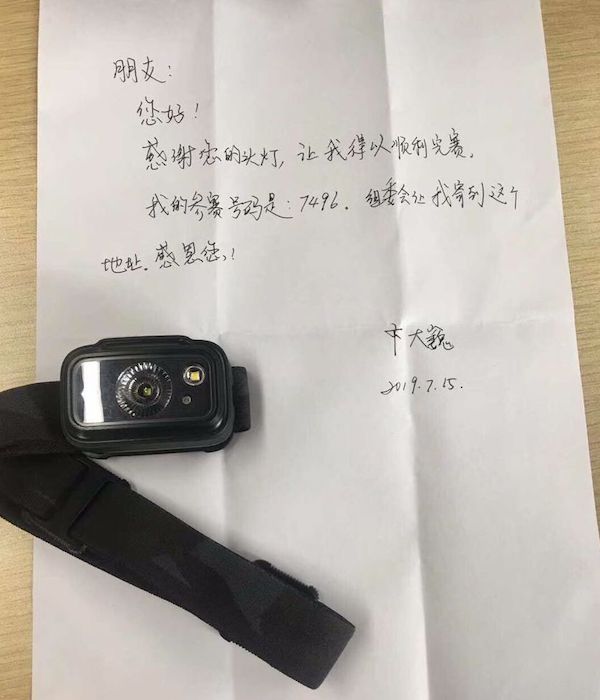 朋友:
您好!
感谢您的头灯,让我得以顺利完赛。
我的参赛号码是:7496. 组委会让我寄到这个
地址。感恩您!
大巍
2019.7.15.